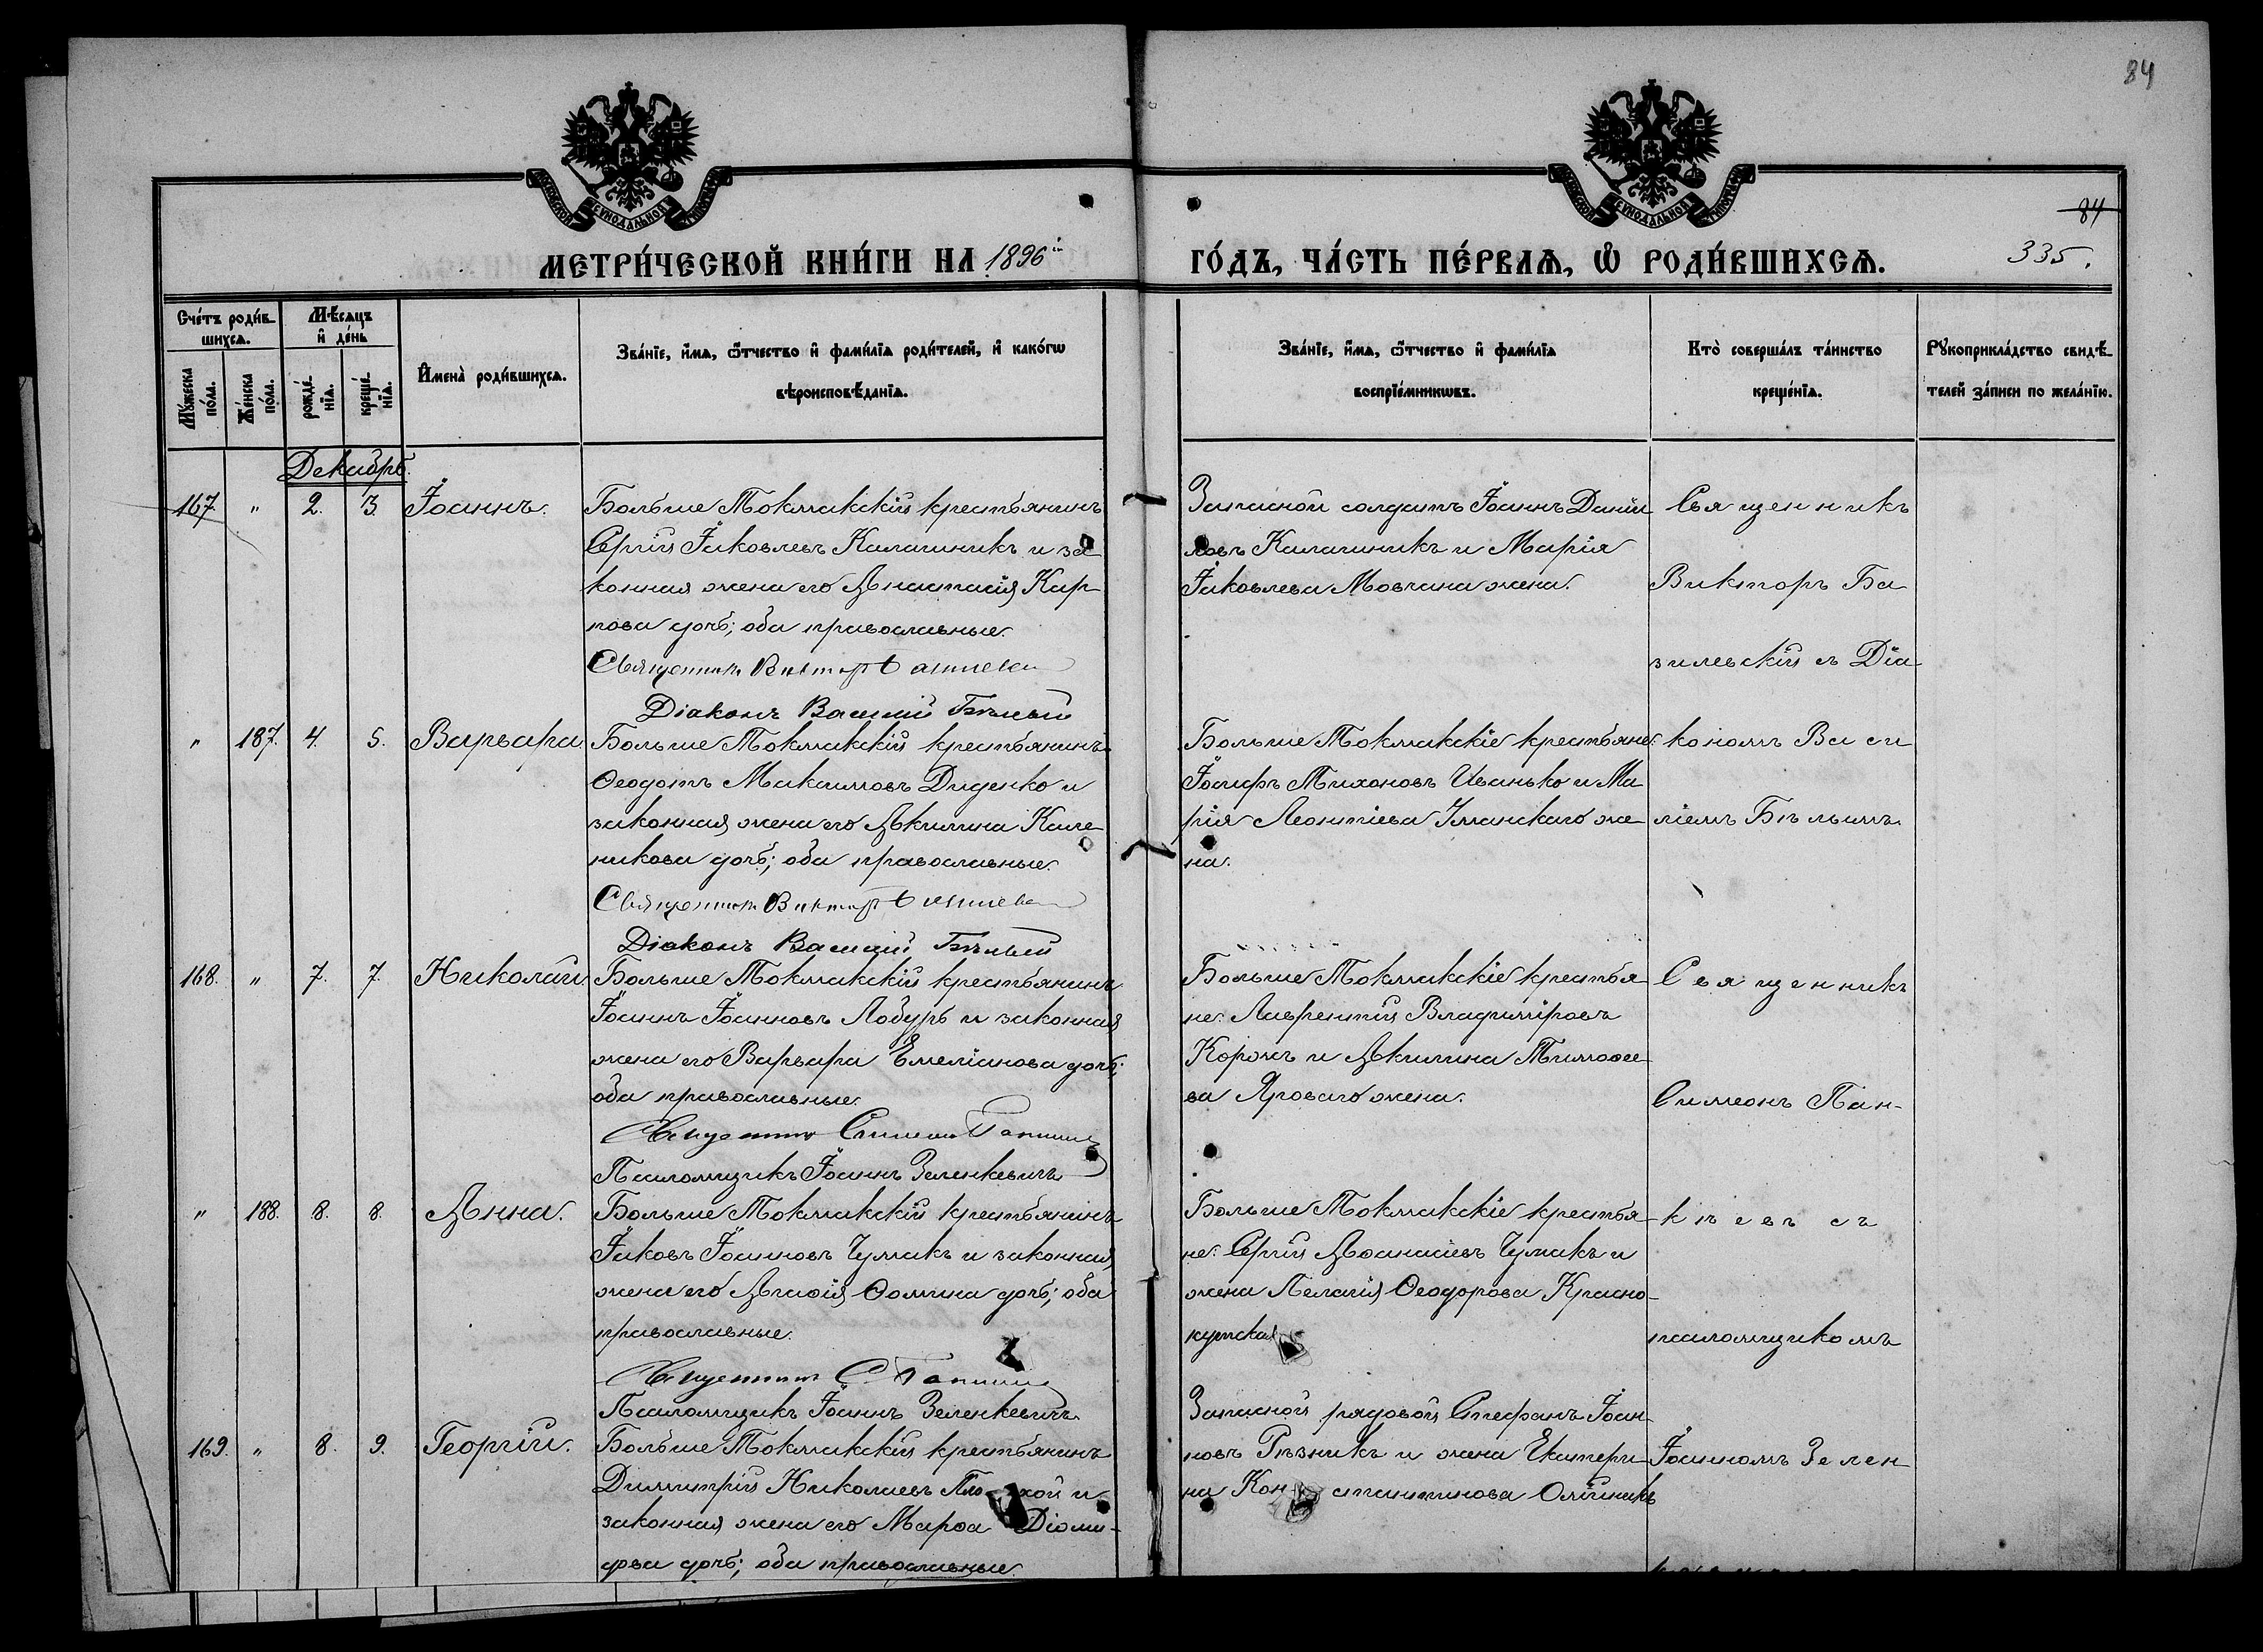 84
84
335.
МЕТРИ́ЧЕСКОЙ КНИ́ГИ НА 1896й
ГО́ДЪ, ЧА́СТЬ ПЕ́РВАѦ, Ѡ҆ РОДИ́ВШИХСѦ.
Сче́тъ роди́в-
шихсѧ.
Мѣ́сѧцъ
и҆ де́нь
Мꙋ́жеска
по́ла.
Же́нска
по́ла.
рожде́-
нїѧ.
креще́-
нїѧ.
И҆мена̀ роди́вшихсѧ.
Зва́нїе, и҆́мѧ, ѻ҆́тчество и҆ фами́лїѧ роди́телей, и҆ како́гѡ
вѣроисповѣ́данїѧ.
Зва́нїе, и҆́мѧ, ѻ҆́тчество и҆ фами́лїѧ
воспрїе́мникѡвъ.
Кто̀ соверша́лъ та́инство
креще́нїѧ.
Рꙋкоприкла́дство свидѣ́-
телей за́писи по жела́нїю.
Декабрь.
167. " 2. 3. Іоаннъ.
Больше Токмакскій крестьянинъ
Сергій Іаковлевъ Калашникъ и за-
конная жена его Анастасія Кар-
пова дочь; оба православные.
Священникъ Викторъ
Діаконъ Василій Бѣлый
Запасной солдатъ Іоаннъ Даніи-
ловъ Калашникъ и Марія
Іаковлева Мовчана жена.
Священникъ
Викторъ Ба-
зилевскій съ Діа-
" 187. 4. 5. Варвара
Больше Токмакскій крестьянинъ
Ѳеодотъ Максимовъ Диденко и
законная жена его Акилина Кале-
никова дочь; оба православные.
Священникъ Викторъ
Діаконъ Василій Бѣлый
Больше Токмакскіе крестьяне:
Іосифъ Тихоновъ Иванько и Ма-
рія Леонтіева Уманскаго же-
на.
кономъ Васи-
ліемъ Бѣлымъ.
168. " 7. 7. Николай.
Больше Токмакскій крестьянинъ
Іоаннъ Іоанновъ Лобуръ и законная
жена его Варвара Емеліанова дочь;
оба православные.
Священникъ Симеонъ
Псаломщикъ Іоаннъ Зеленкевичъ
Больше Токмакскіе крестья-
не: Лаврентій Владиміровъ
Корожъ и Акилина Тимоѳее-
ва Яроваго жена.
Священникъ
Симеонъ Пан-
" 188. 8. 8. Анна.
Больше Токмакскій крестьянинъ
Іаковъ Іоанновъ Чумакъ и законная
жена его Агаѳія Ѳомина дочь; оба
православные.
Священникъ С
Псаломщикъ Іоаннъ Зеленкевичъ
Больше Токмакскіе крестья-
не: Сергій Аѳанасіевъ Чумакъ и
жена Пелагія Ѳеодорова Красно-
кутская
кѣевъ съ
псаломщикомъ
169. " 8. 9. Георгій.
Больше Токмакскій крестьянинъ
Димитрій Николаевъ и
законная жена его Марѳа Діоми-
дова дочь; оба православные.
Запасной рядовой Стефанъ Іоан-
новъ Рѣзникъ и жена Екатери-
на Константинова Олійникъ
Іоанномъ Зелен-